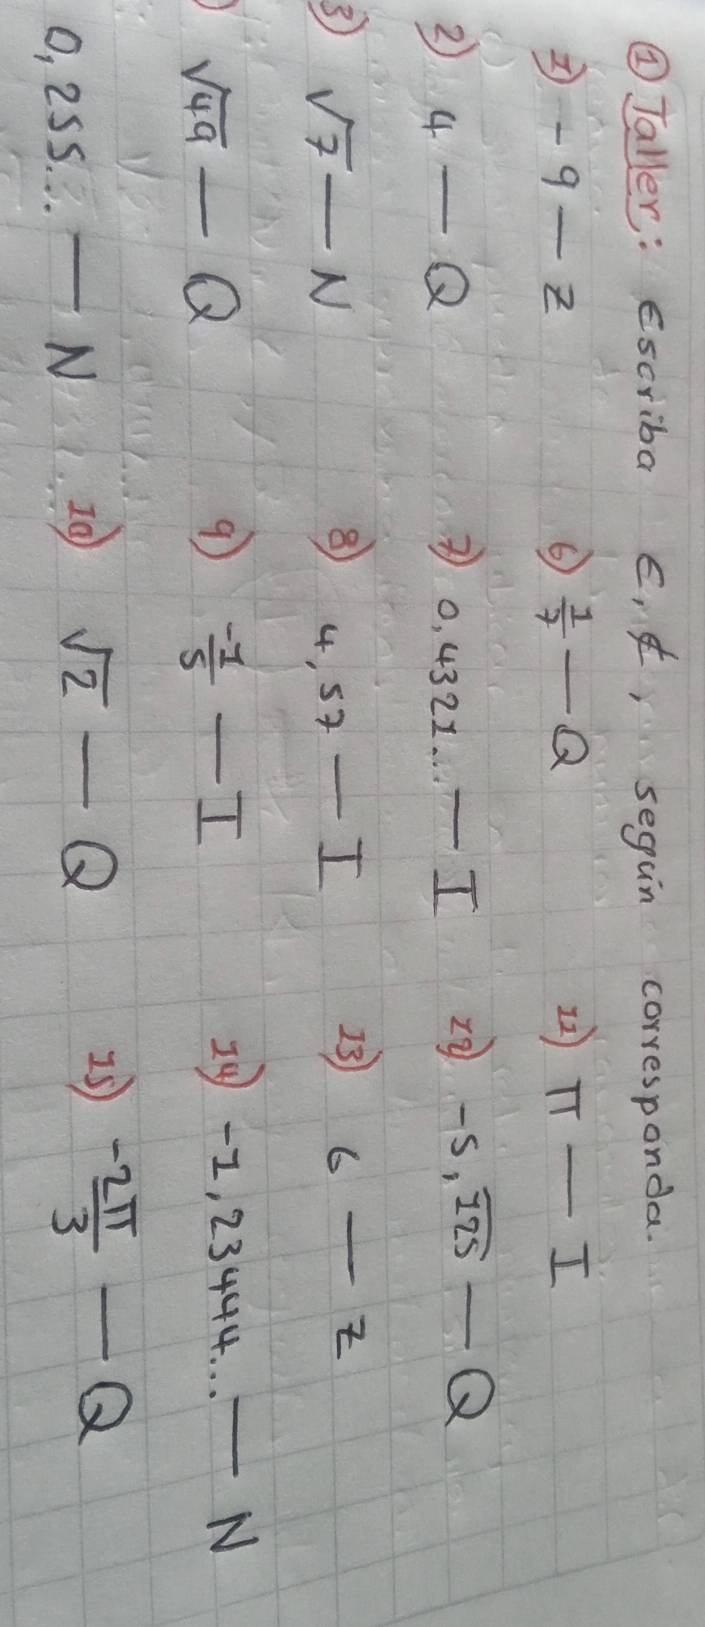 ① Taller: Escriba ∈, ∉, según corresponda.
1) -9 — Z 6) 1/7 — Q 11) π — I
2) 4 — Q 7) 0,4321... — I 12) -5,1̅2̅5̅ — Q
3) √7 — N 8) 4,57 — I 13) 6 — Z
) √49 — Q 9) -1/5 — I 14) -1,23444... — N
0,255... — N 10) √2 — Q 15) -2π/3 — Q